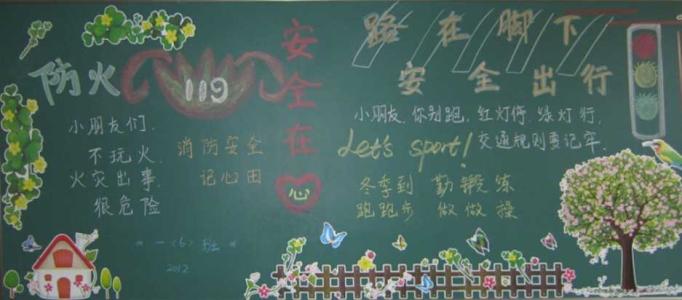 防火
119
小朋友们.
不玩火.
火灾出事.
很危险
消防安全
记心田
“一〈6〉班”
2012
安全在心
路在脚下
安全出行
小朋友.你别跑.红灯停.绿灯行.
交通规则要记牢.
Let's sport!
冬季到 勤锻炼
跑跑步 做做操